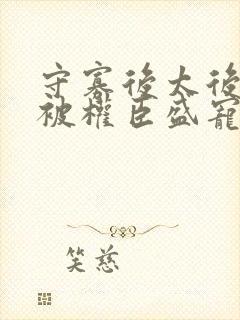 守寡後太後
被權臣盛寵
笑慈